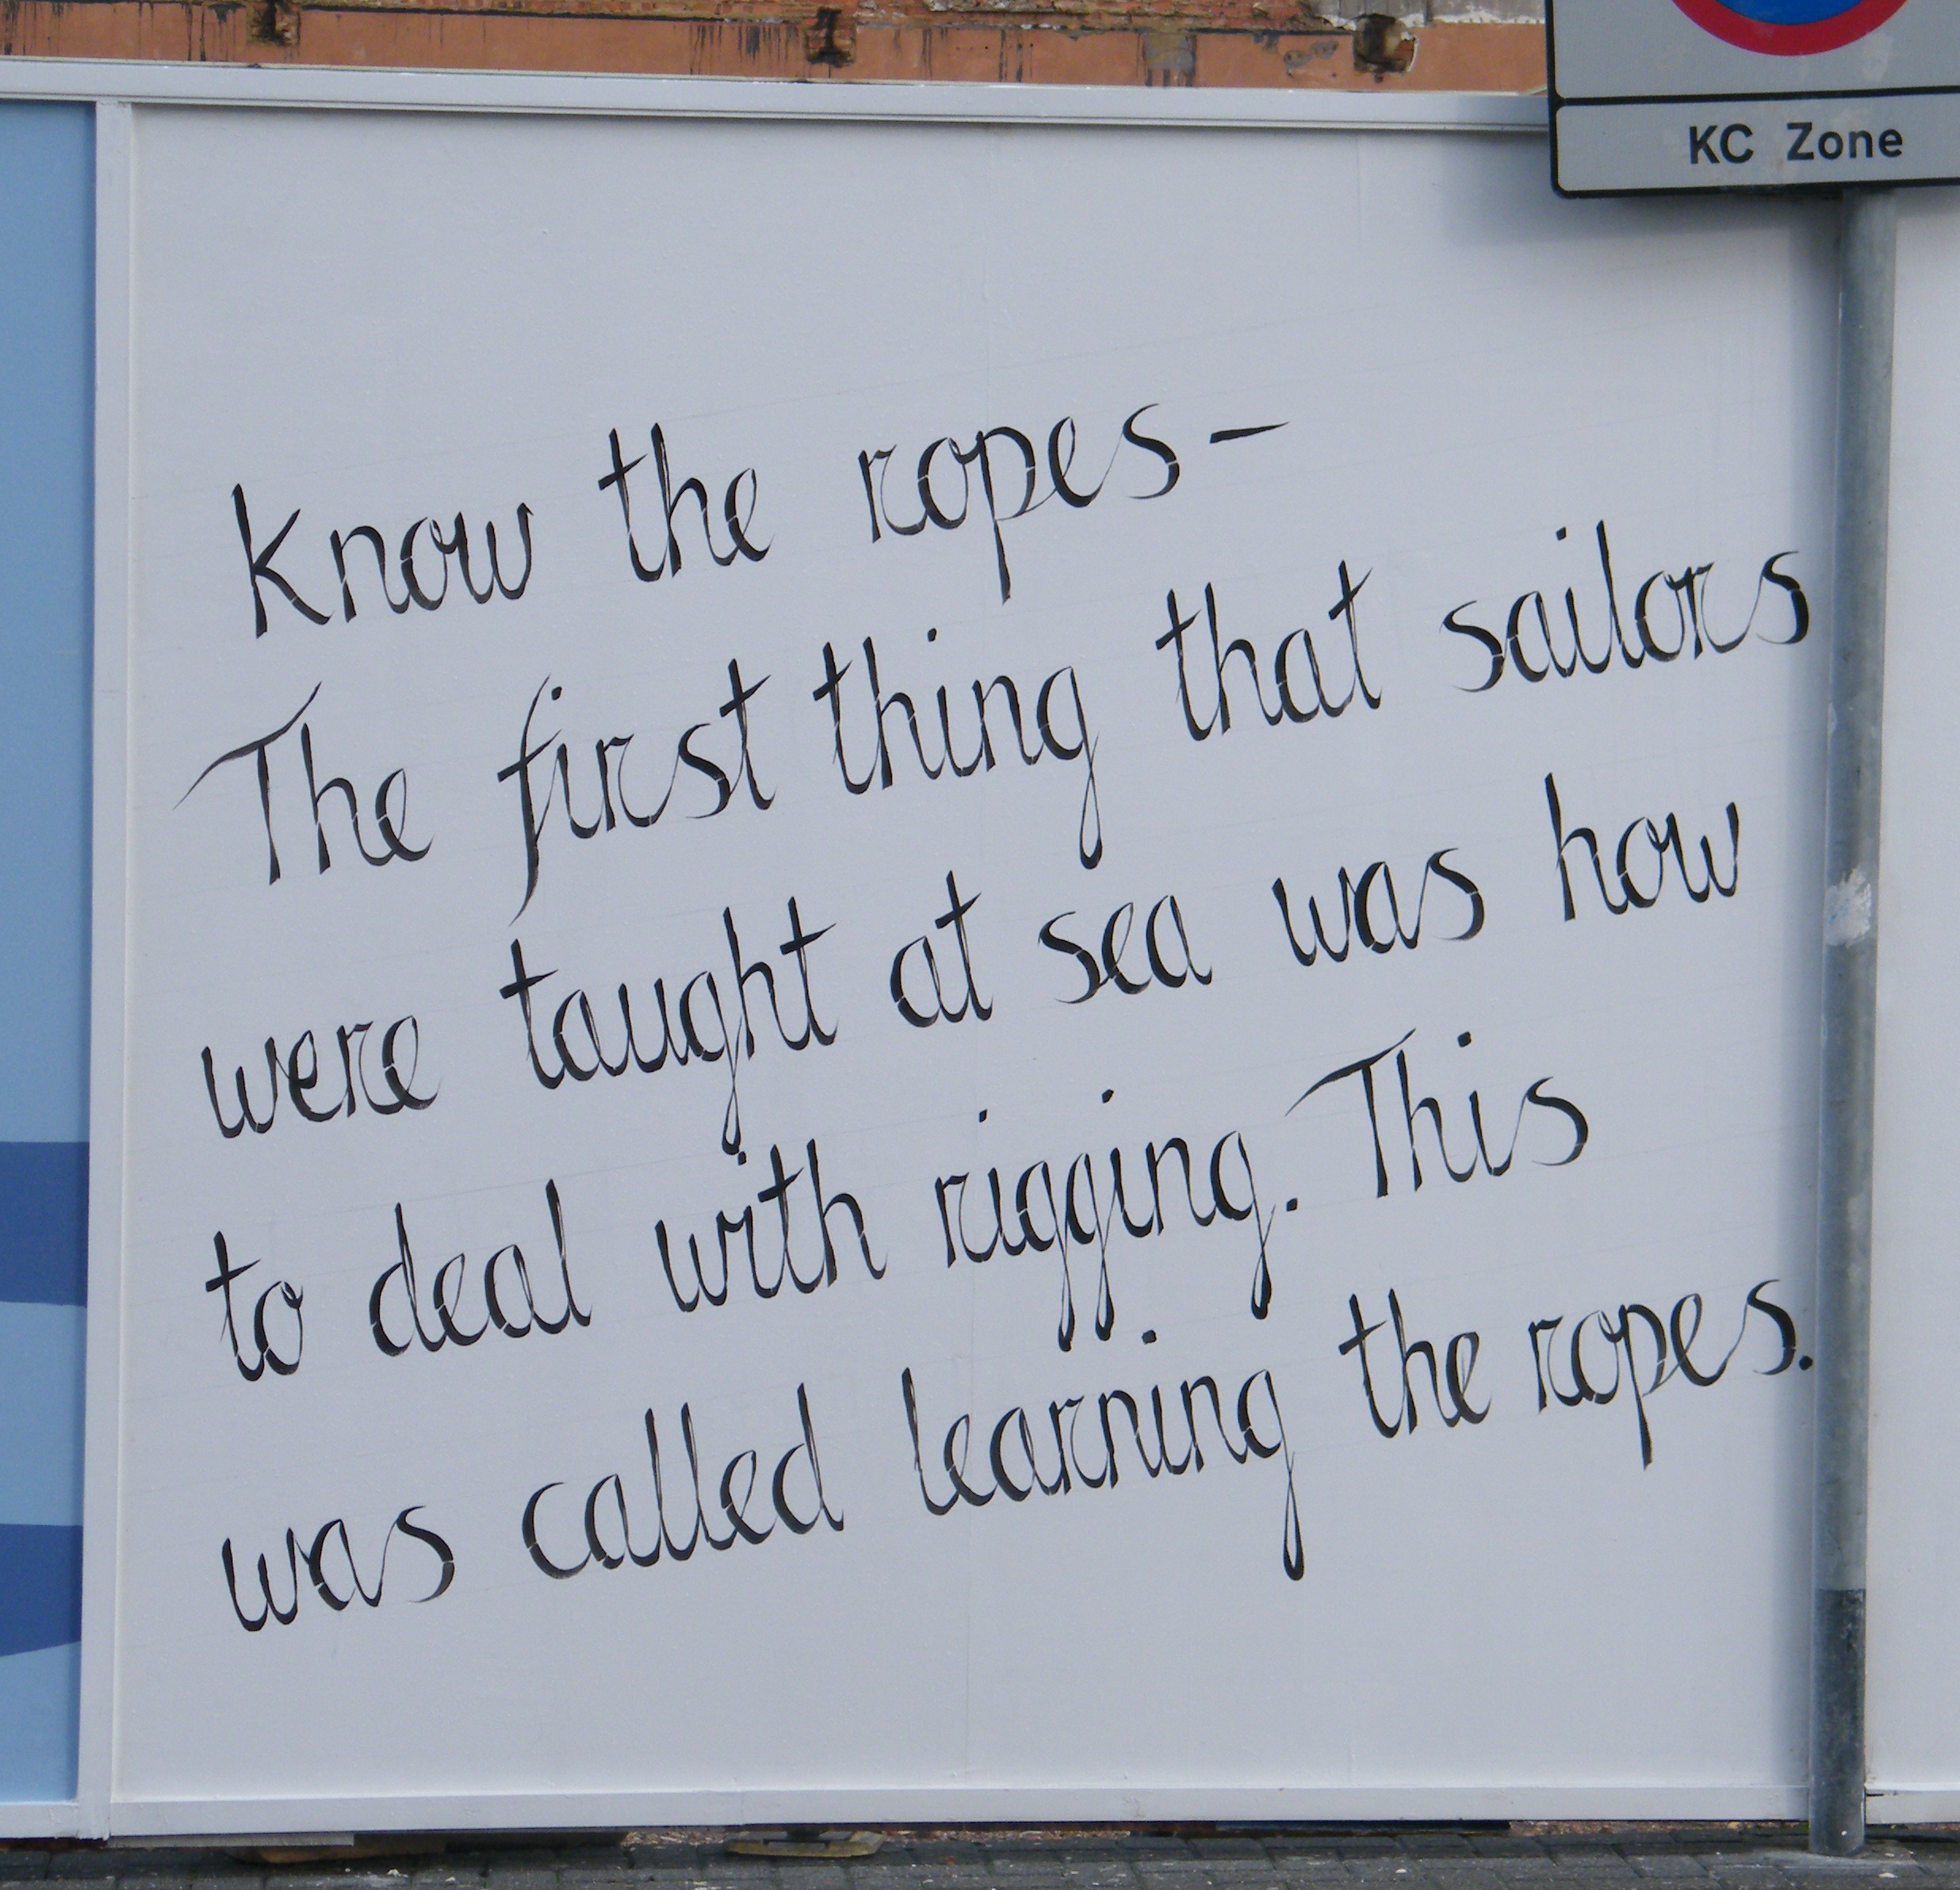 KC Zone
Know the ropes –
The first thing that sailors
were taught at sea was how
to deal with rigging. This
was called learning the ropes.